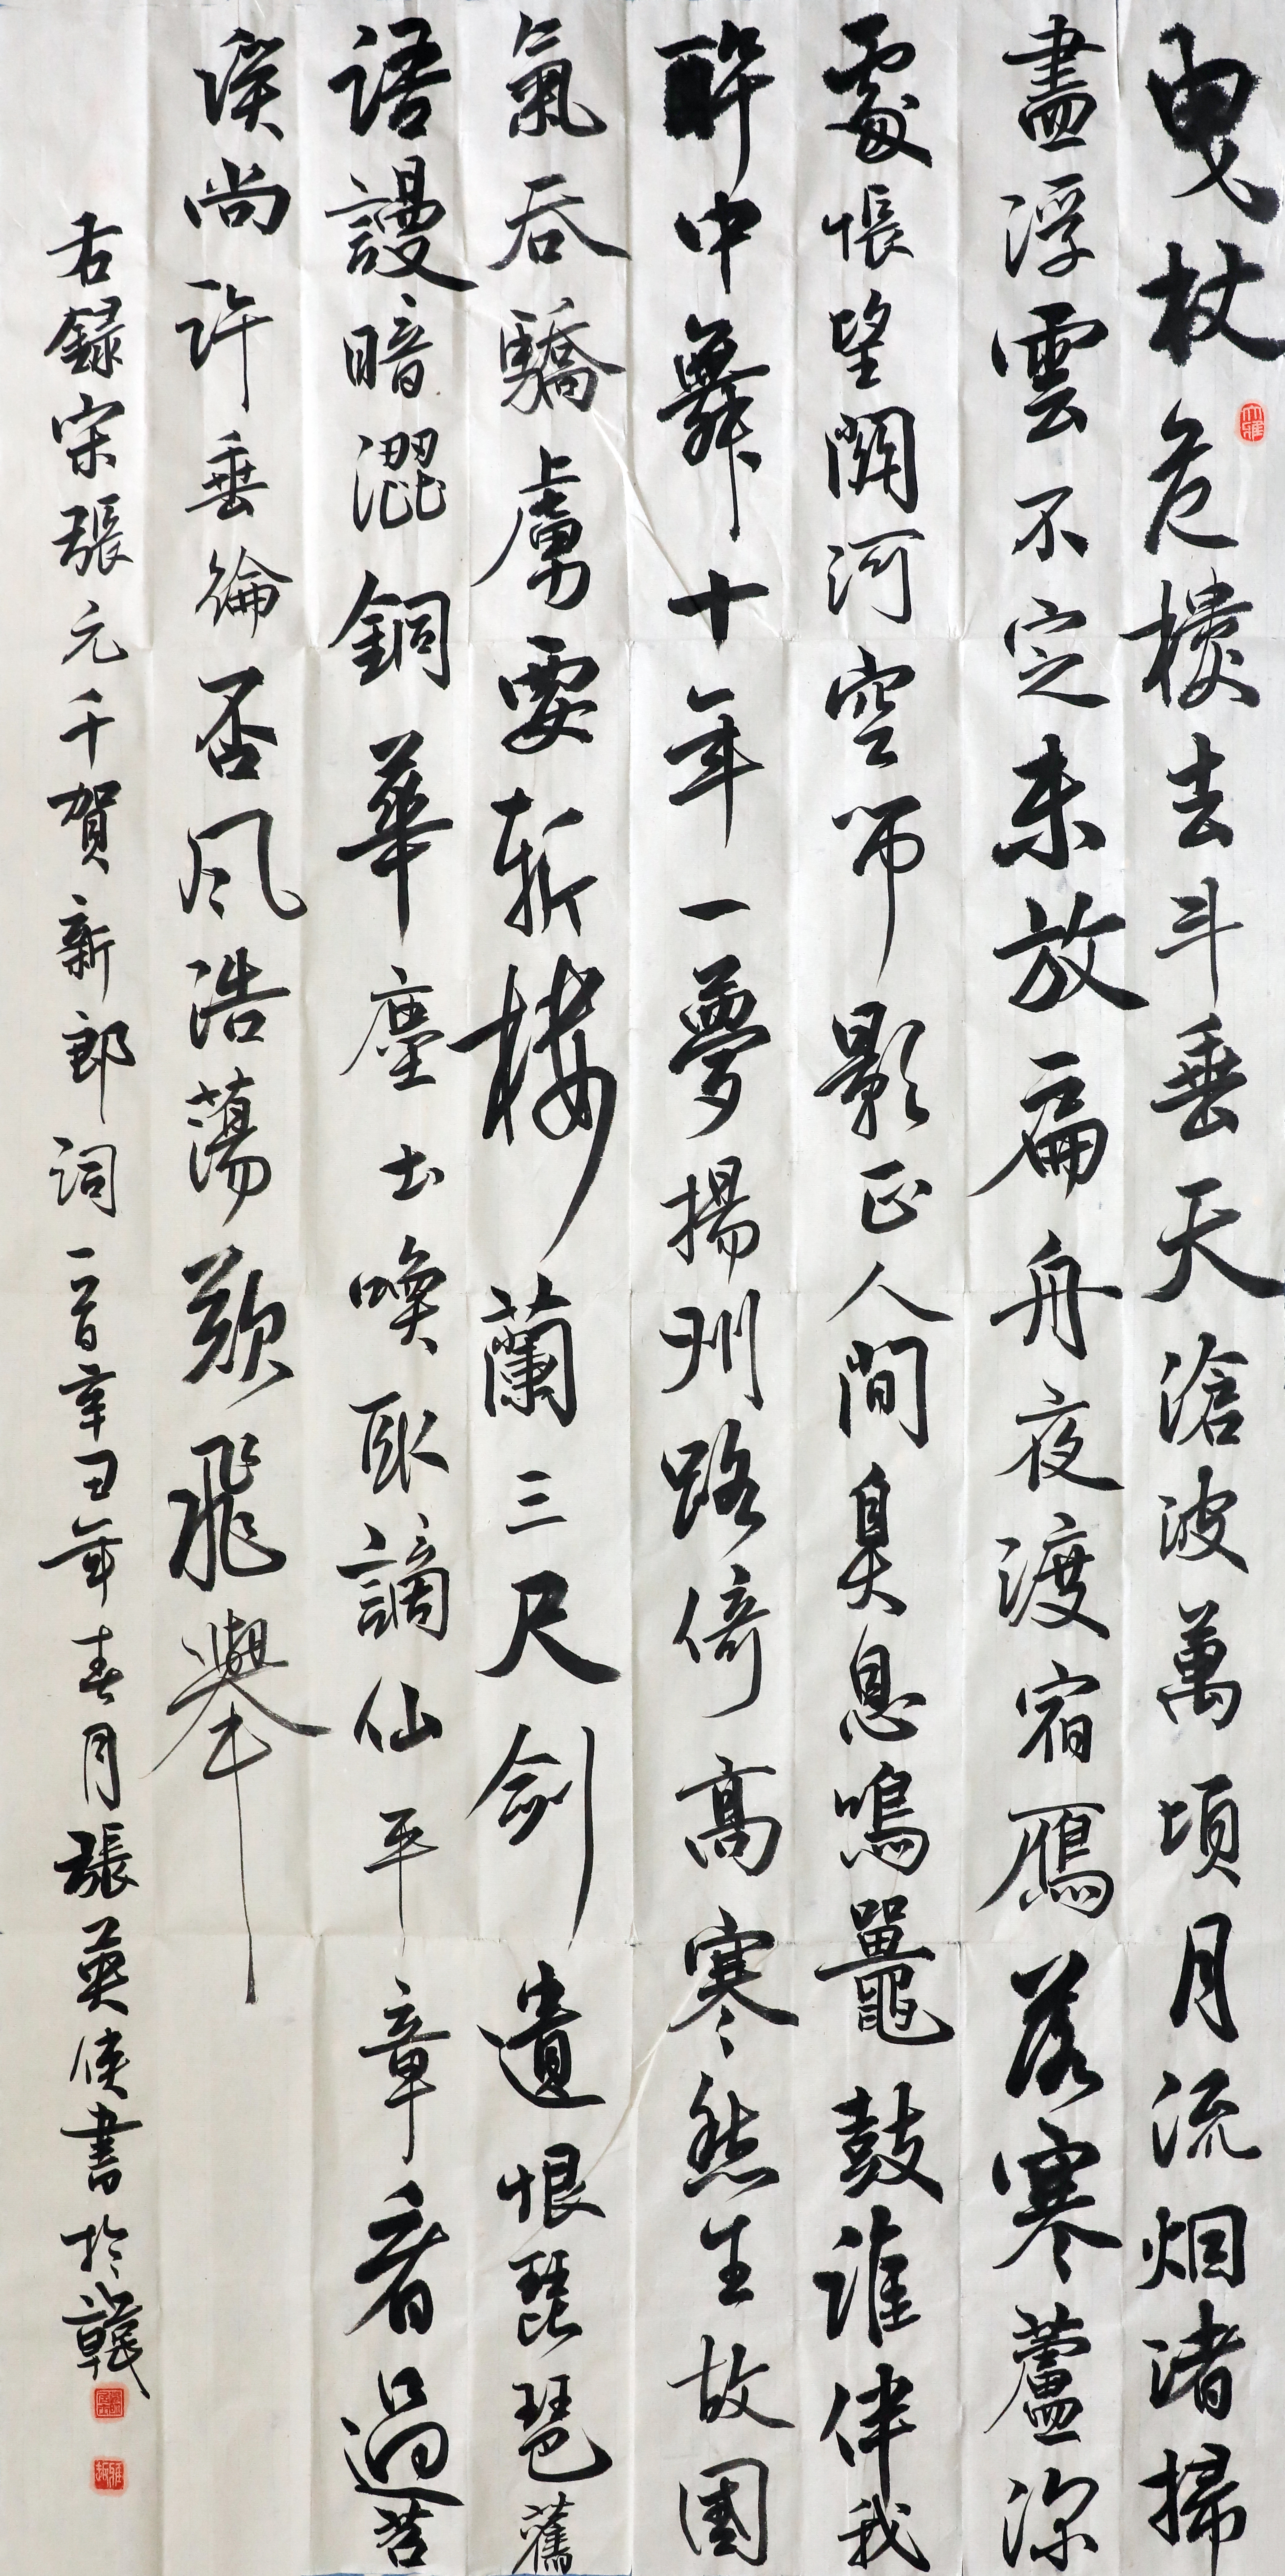 曳杖危樓去斗垂天滄波萬頃月流烟渚掃
盡浮雲不定未放扁舟夜渡宿鴈落寒蘆深
處悵望關河空吊影正人間鼻息鳴鼉鼓誰伴我
醉中舞十年一夢揚州路倚高寒愁生故國
氣吞驕虜要斬樓蘭三尺劍遺恨琵琶舊
語謾暗澀銅華塵土喚取謫仙平章看過苕
溪尚許垂綸否風浩蕩欲飛舉
右錄宋張元千賀新郎詞一首辛丑年春月張英俠書於